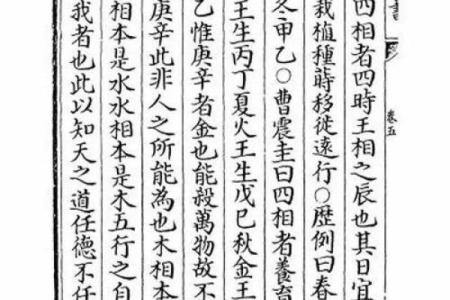 卷五
四相者四時王相之辰也其日宜
栽植種蒔移徙遠行○歷例曰春
冬甲乙○曹震圭曰四相者養育
王生丙丁夏火王生戊巳秋金王
乙惟庚辛者金也能殺萬物故不
庚辛此非人之所能為也木相本
水相本是水水相本是木五行之自
我者也此以知天之道任德不任